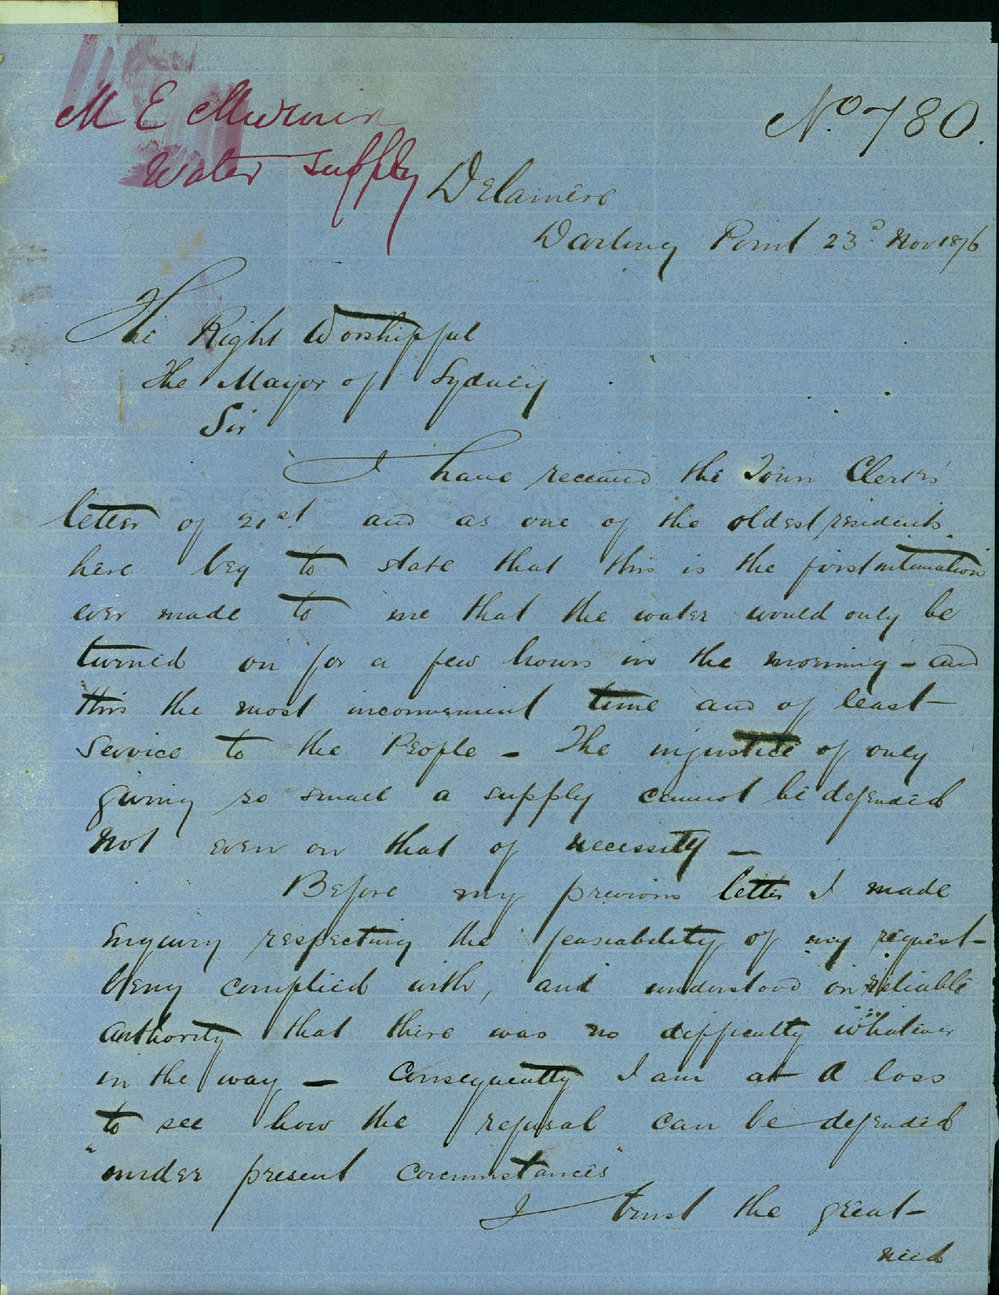 M E
Water Supply
No 780.
Delamere
Darling Point 23d Nov 1876
The Right Worshipful
The Mayor of Sydney
Sir
I have received the Town Clerk's
letter of 21st and as one of the oldest residents
here beg to state that this is the first intimation
ever made to me that the water would only be
turned on for a few hours in the morning – and
this the most inconvenient time and of least
service to the People – The injustice of only
giving so small a supply cannot be defended
not even on that of necessity –
Before my previous letter I made
Enquiry respecting the feasiability of my request
being complied with, and understood on reliable
authority that there was no difficulty whatever
in the way – Consequently I am at a loss
to see how the refusal can be defended
"under present circumstances"
I trust the great
need